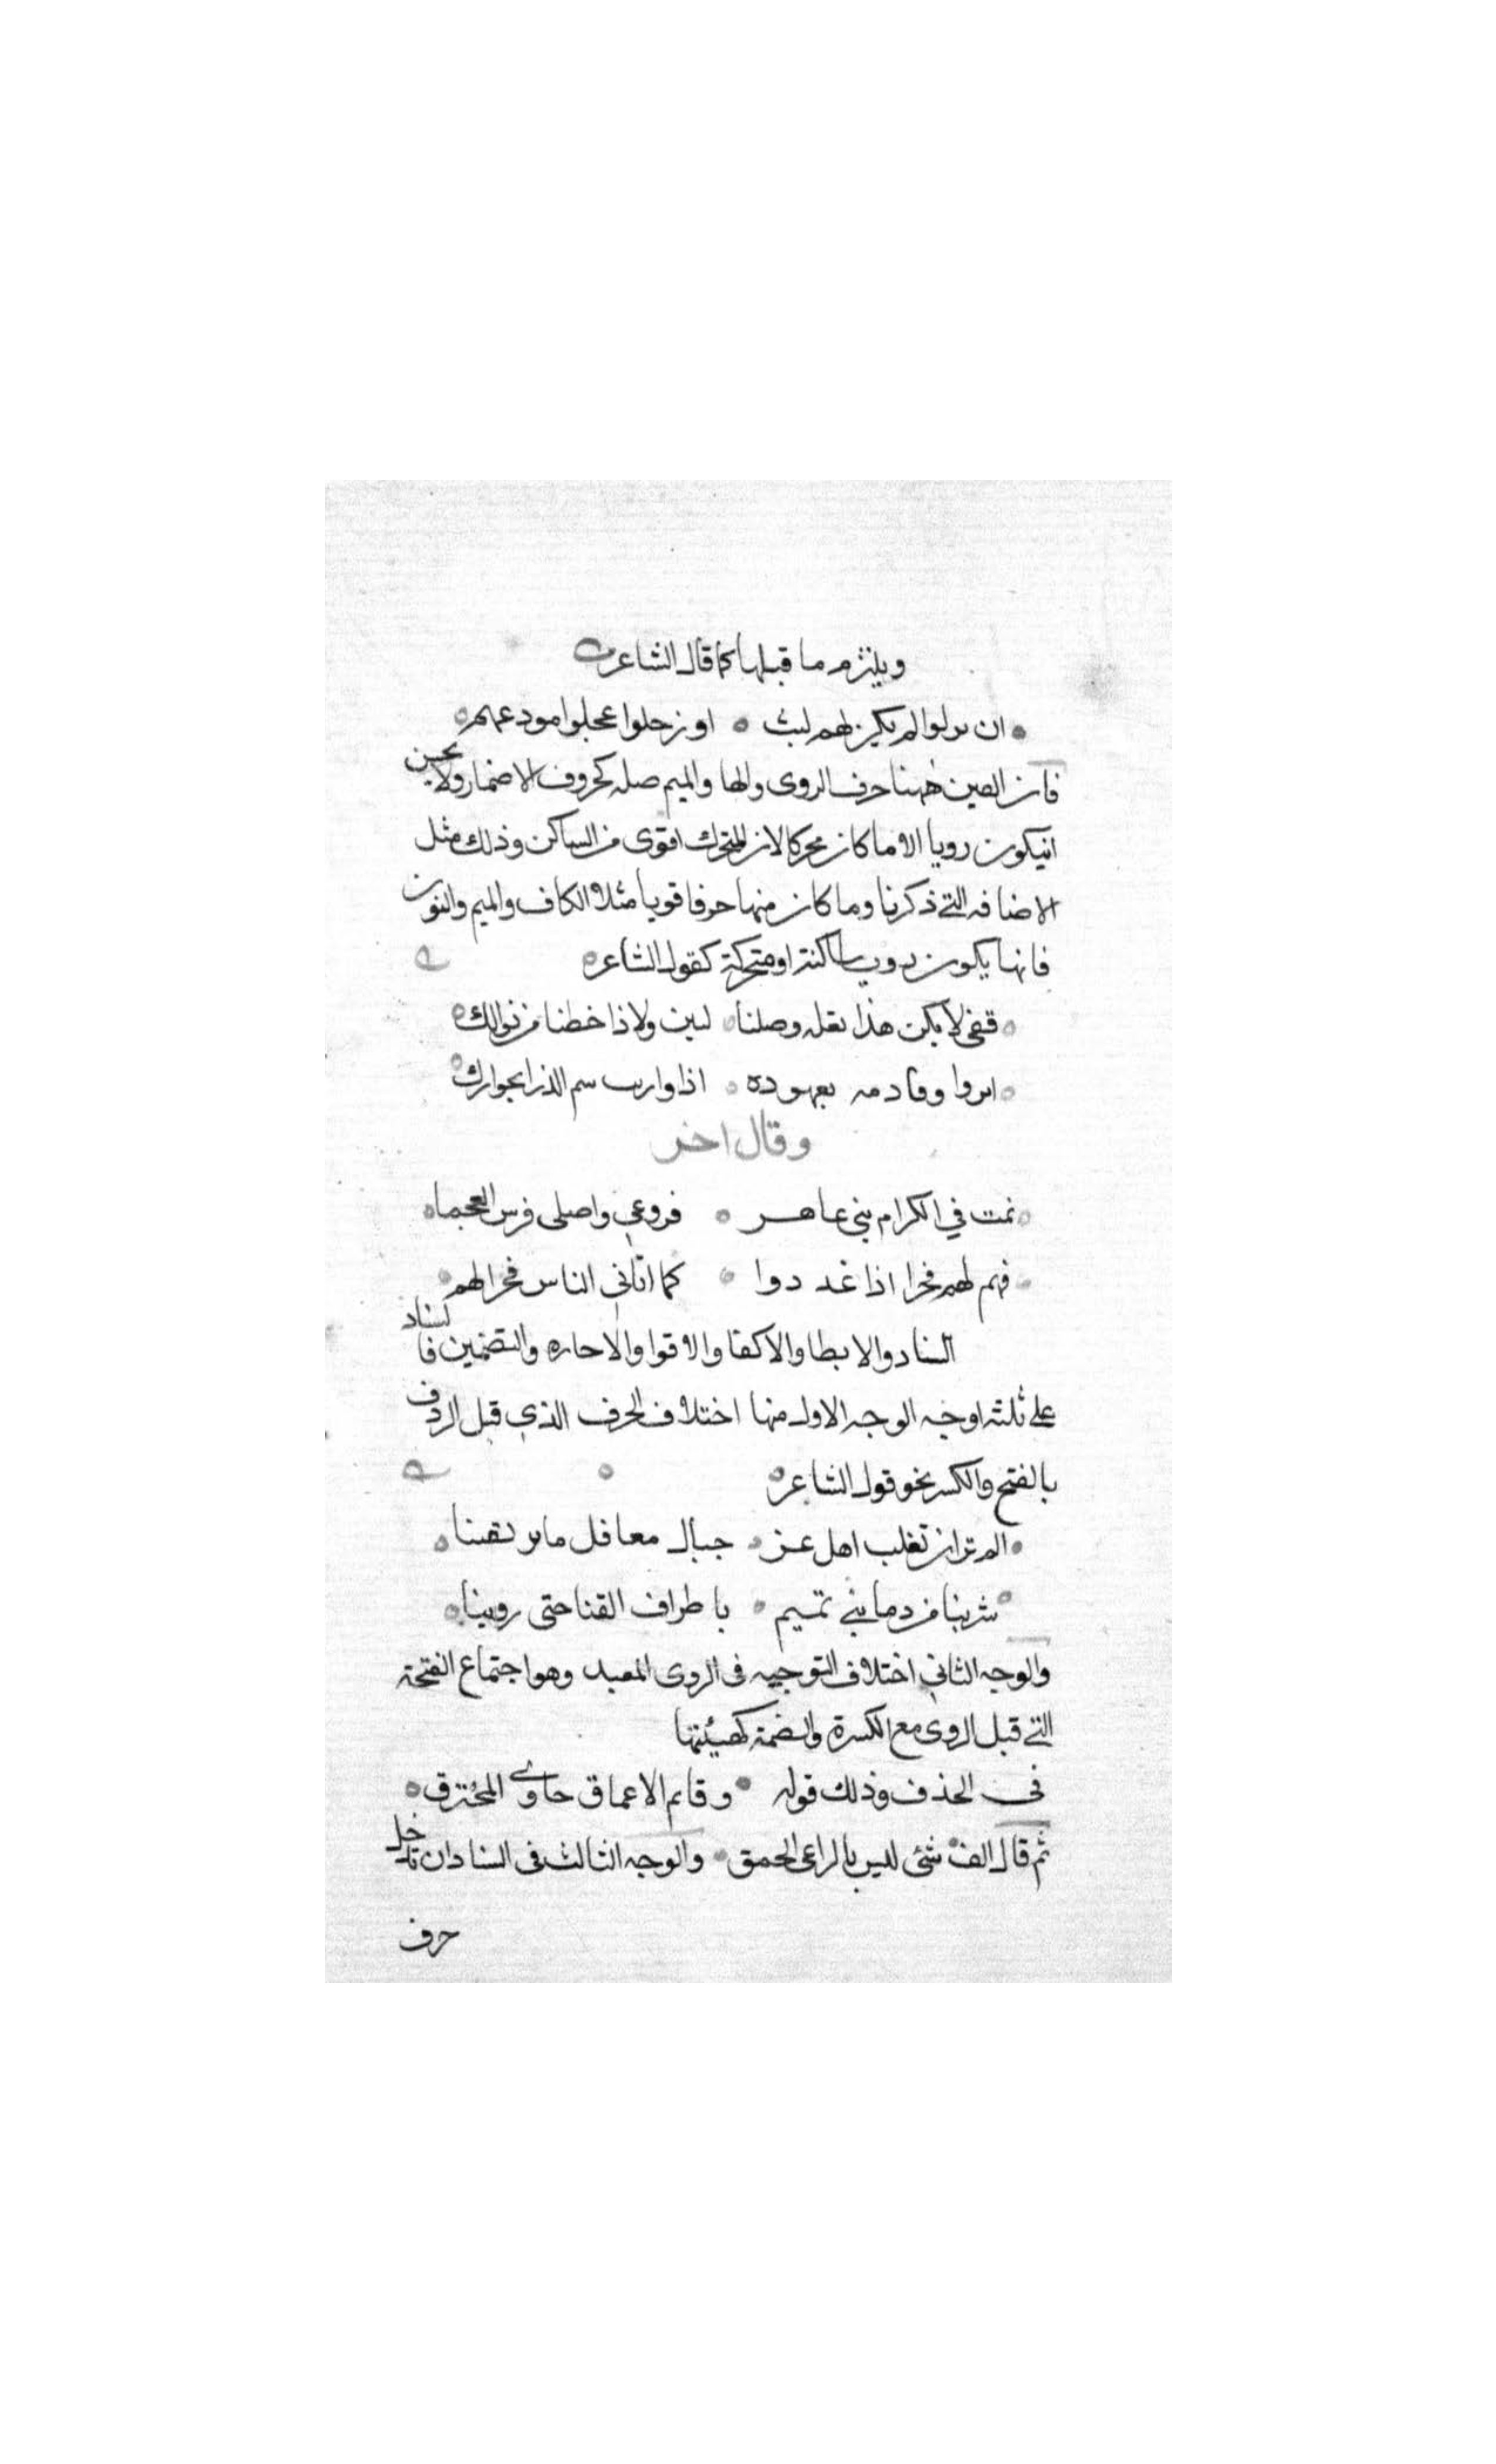 ويلتزم ما قبلها كما قال الشاعر
ان لم يكن لهم لبث او رحلوا عجلوا مودعهم
فان العين ههنا حرف الروى والها والميم صله كحروف الاضمار ولا يحسن
انيكون رويا الا ما كان محركا لان المتحرك اقوى من الساكن وذلك مثل
الاضافه التي ذكرنا وما كان منها حرفا قويا مثلا الكاف والميم والنون
فانها يكون روي ساكنة او متحركة كقول الشاعر
قفى لا يكن هذا تعله وصلنا لبين ولا ذا حظنا من نوالك
اذا سم الذرا بجوارك
وقال اخر
نمت في الكرام بنى عامر فروعي واصلى فرس العجما
فهم لهم فخرا اذا غددوا كما اتاني الناس فخرا لهم
السناد والابطا والاكفا والاقوا والاحاره والتضمين فالسناد
على ثلثه اوجه الوجه الاول منها اختلاف الحرف الذي قبل الردف
بالفتح والكسر نحو قول الشاعر
الم تر ان تغلب اهل عز جبال معاقل ما
شربنا من دما بني تميم باطراف القنا حتى روينا
والوجه الثاني اختلاف التوجيه فى الروى المقيد وهو اجتماع الفتحة
التي قبل الروى مع الكسرة والضمة كهيئتها
في الحذف وذلك قوله وقاتم الاعماق حاوى المخترق
ثم قال الف شتى ليس بالراعى الحمق والوجه الثالث فى السناد ان تدخل
حرف